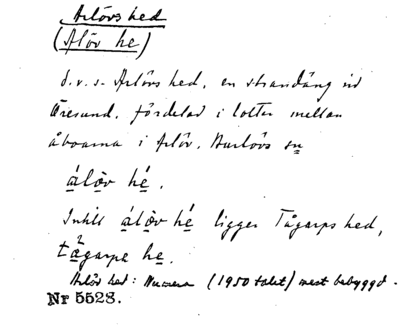 Arlövs hed
(Alöv he)
d.v.s. Arlövs hed, en strandäng vid
Öresund, fördelad i lotter mellan
åboarna i Arlöv, Burlövs sn
álòv hé.
Intill álòv hé ligger Tågarps hed,
tågarpe he.
Arlöv hed: Numera (1950 talet) mest bebyggd.
Nr 5528.